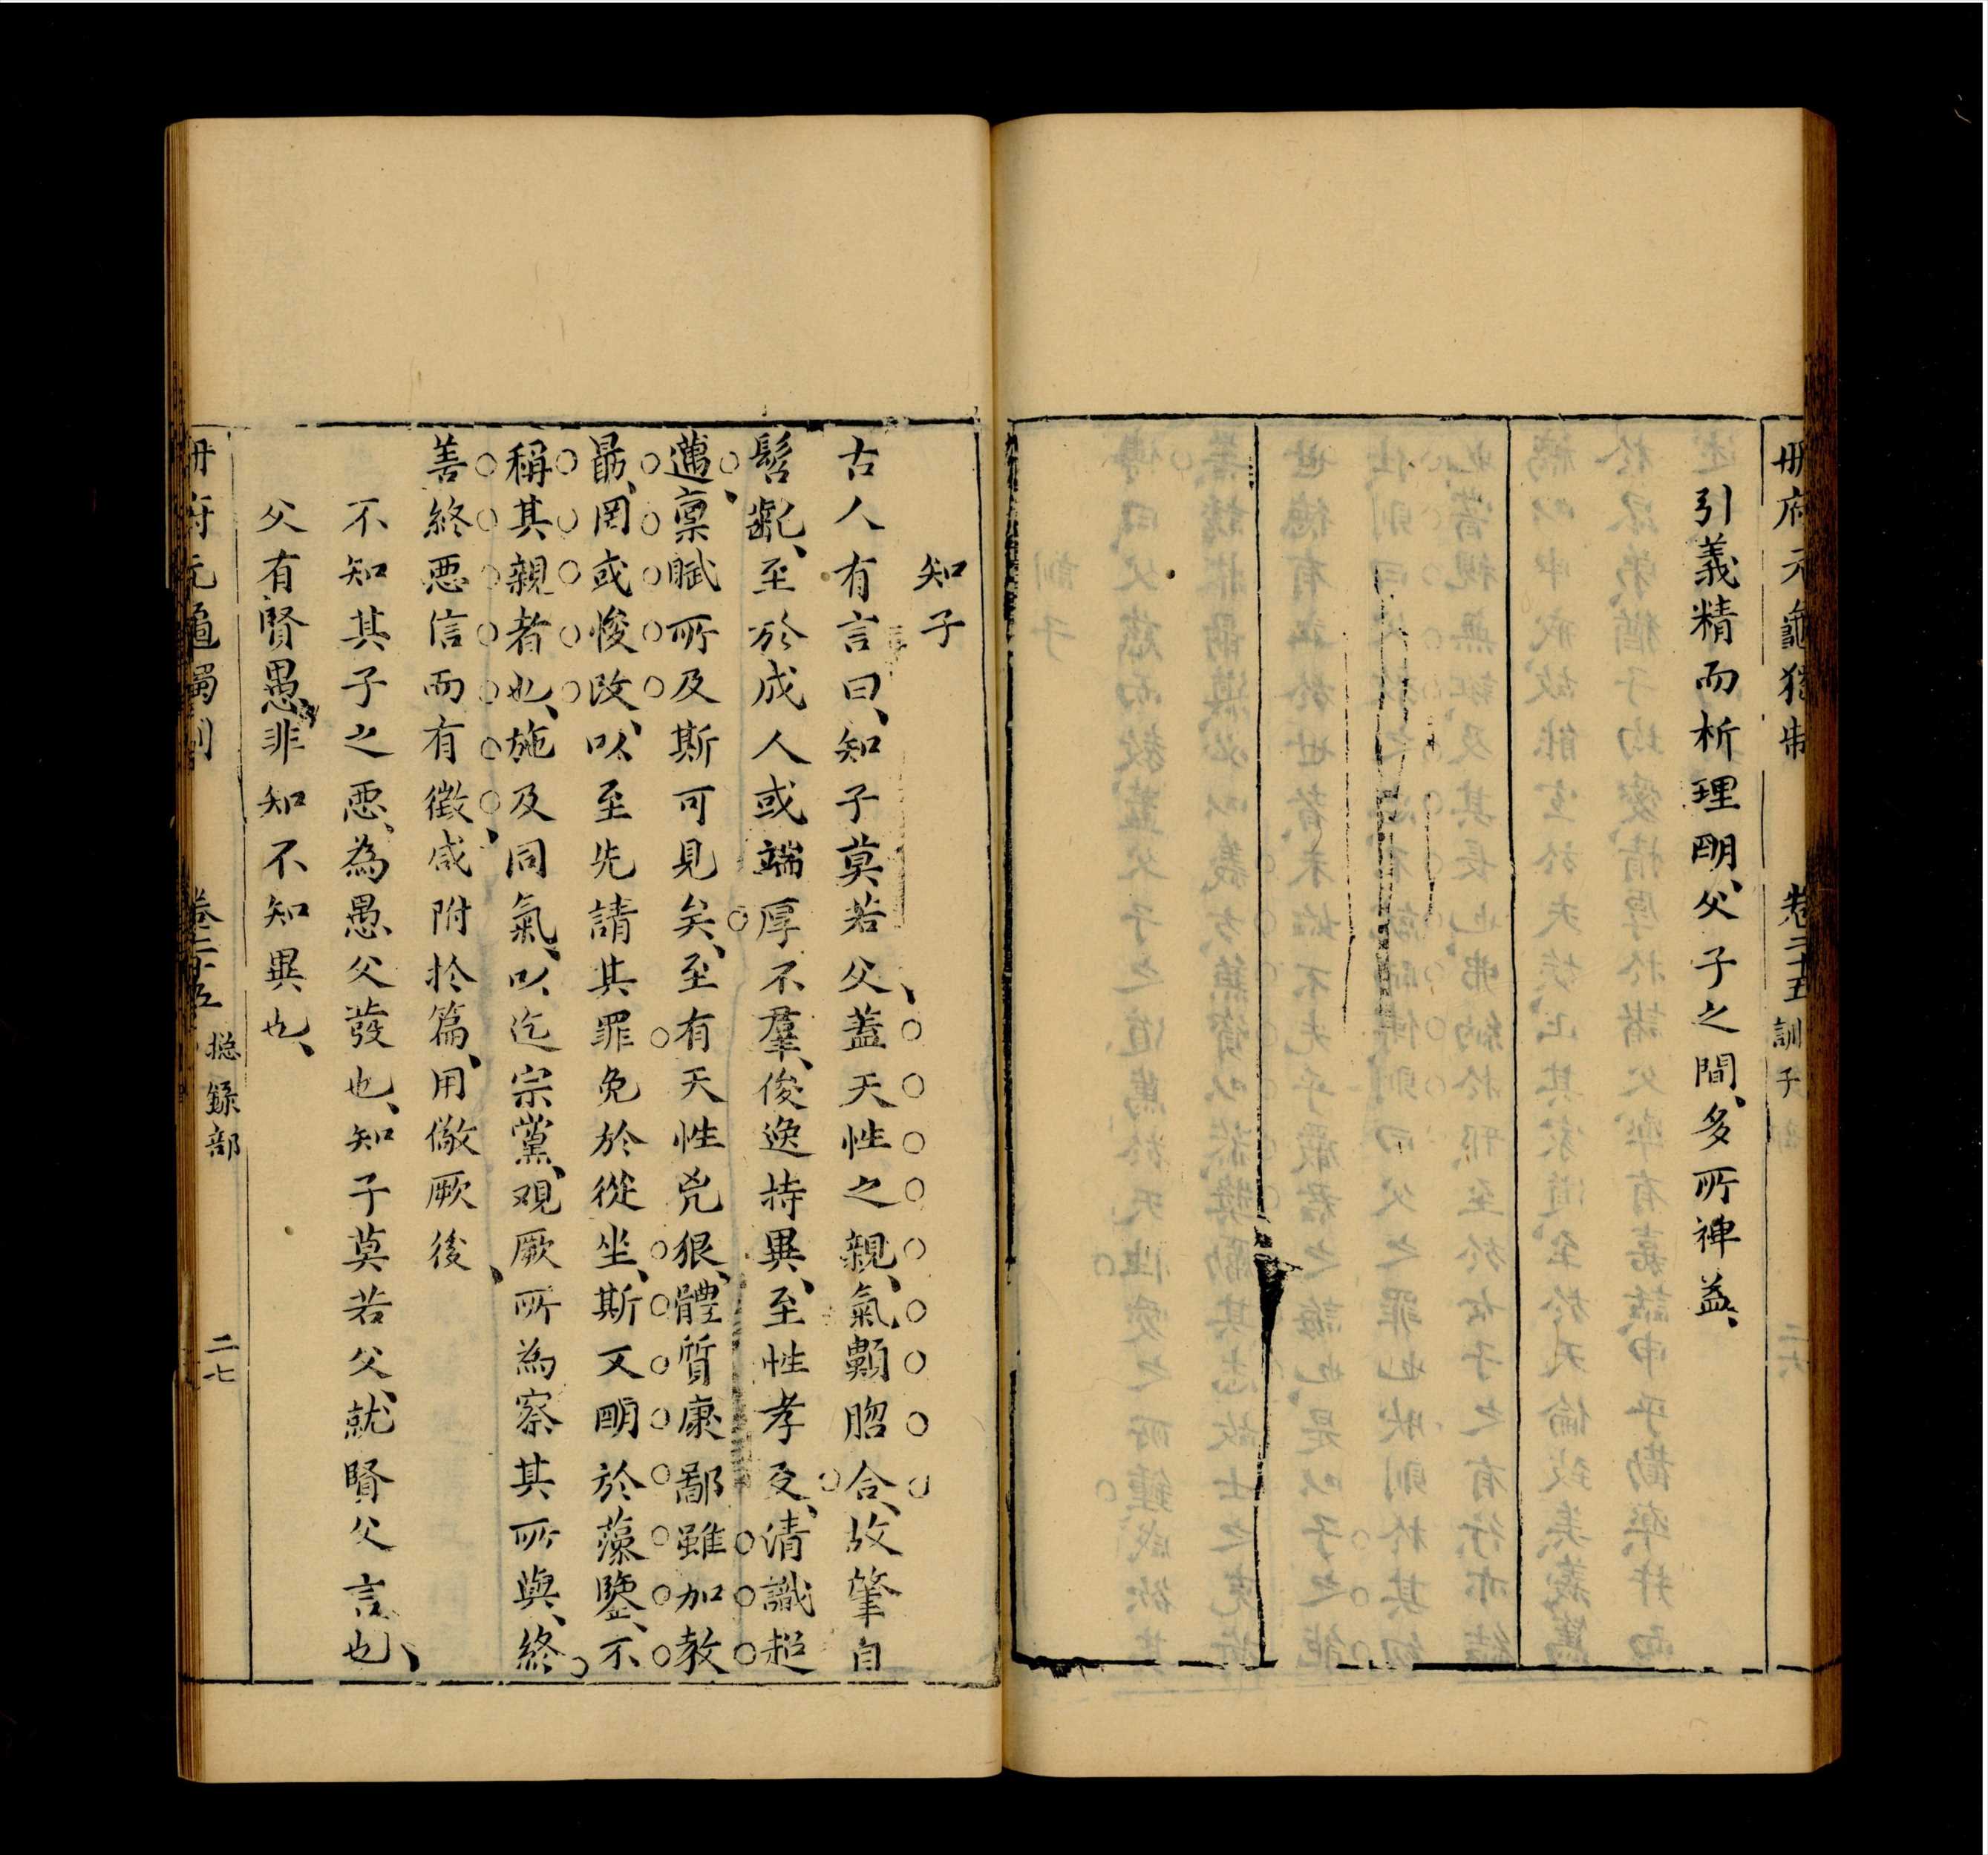 冊府元龜獨制 卷二十五 訓子
引義精而析理明、父子之間、多所裨益、
知子
古人有言曰、知子莫若父、蓋天性之親、氣類脗合、故肇自
髫齔、至於成人或端厚不羣、俊逸特異、至性孝友、清識超
邁、稟賦所及斯可見矣、至有天性兇狠、體質庸鄙雖加教
勗、罔或悛改、以至先請其罪免於從坐、斯又明於藻鑒、不
稱其親者也、施及同氣、以迄宗黨、觀厥所為察其所與、終
善終惡信而有徵、咸附於篇、用儆厥後、
不知其子之惡、為愚父發也、知子莫若父、就賢父言也、
父有賢愚、非知不知異也、
冊府元龜獨制 卷二十五 總錄部 二七